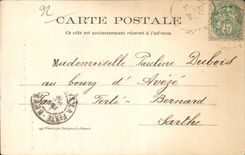 92
CARTE POSTALE
Ce côté est exclusivement réservé à l'adresse.
5
Mademoiselle Pauline Dubois
au bourg d'Avézé
Ferté-Bernard
Sarthe
LA FERTÉ-BERNARD